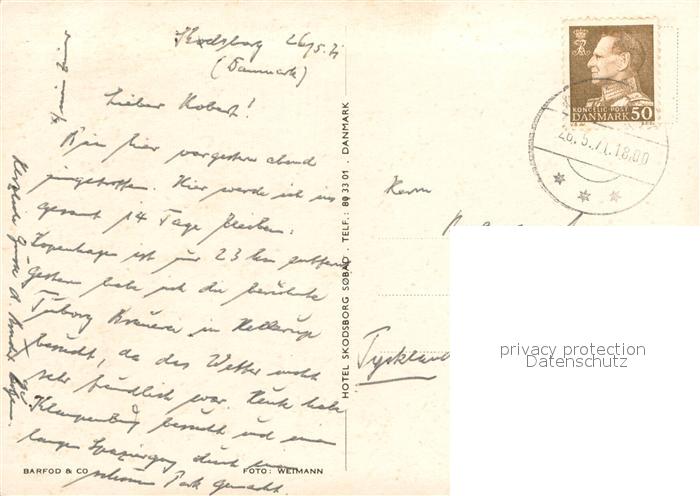 Skodsborg 26/5.71
(Danmark)
Lieber Robert!
Bin hier vorgestern abend
eingetroffen. Hier werde ich ins
gesamt 14 Tage bleiben.
Kopenhagen ist nur 23 km entfernt
Gestern habe ich die berühmte
Tuborg Brauerei in Hellerup
besucht, da das Wetter nicht
sehr freundlich war. Heute habe
Klampenborg besucht und einen
langen Spaziergang durch einen
schönen Park gemacht.
Herzliche Grüsse
BARFOD & CO
FOTO: WEIMANN
HOTEL SKODSBORG SØBAD . TELF.: 80 33 01 . DANMARK
KONGELIG POST
DANMARK 50
26.5.71.18.00
Herrn
Tyskland
privacy protection
Datenschutz